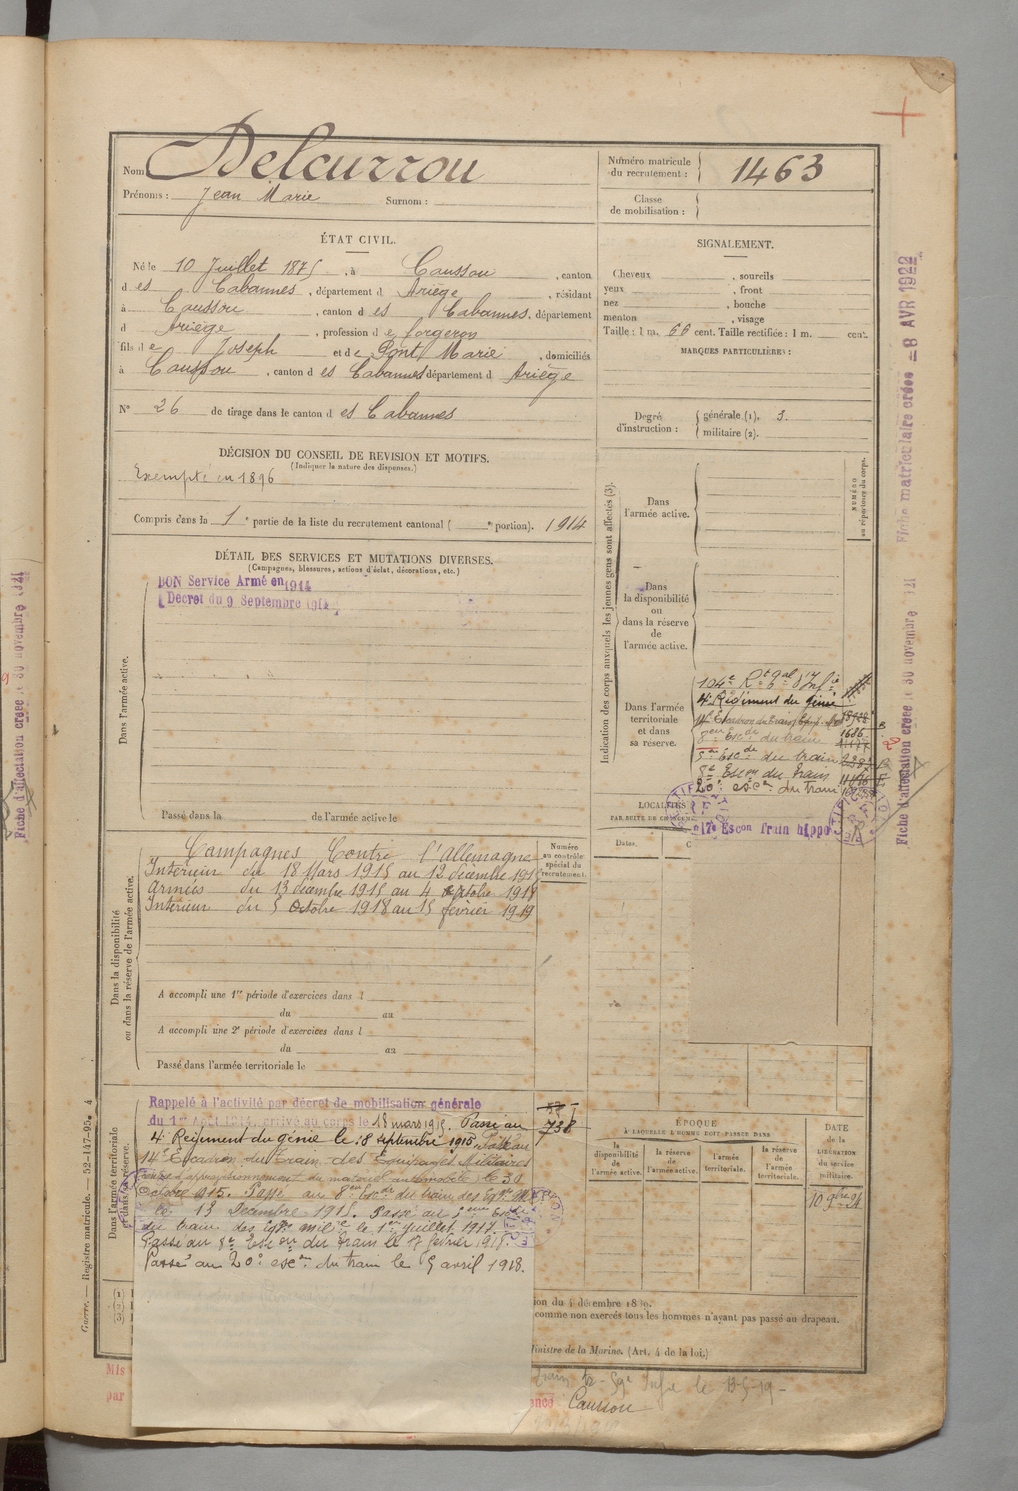 Nom Delcurrou
Prénoms : Jean Marie Surnom :
Numéro matricule du recrutement : 1463
Classe de mobilisation :
ÉTAT CIVIL.
Né le 10 Juillet 1875, à Caussou, canton
d es Cabannes, département d Ariège, résidant
à Caussou, canton d es Cabannes, département
d Ariège, profession d e forgeron
fils d e Joseph et d e Pont Marie, domiciliés
à Caussou, canton d es Cabannes département d Ariège
N° 26 de tirage dans le canton d es Cabannes
SIGNALEMENT.
Cheveux , sourcils
yeux , front
nez , bouche
menton , visage
Taille : 1 m. 66 cent. Taille rectifiée : 1 m. cent.
MARQUES PARTICULIÈRES :
Degré d'instruction : générale (1). 3.
militaire (2).
DÉCISION DU CONSEIL DE REVISION ET MOTIFS.
(Indiquer la nature des dispenses.)
Exempté en 1896
Compris dans la 1e partie de la liste du recrutement cantonal ( e portion). 1914
DÉTAIL DES SERVICES ET MUTATIONS DIVERSES.
(Campagnes, blessures, actions d'éclat, décorations, etc.)
BON Service Armé en 1914
Décret du 9 Septembre 1914
Dans l'armée active.
Passé dans l de l'armée active le
Indication des corps auxquels les jeunes gens sont affectés (3).
NUMÉRO au répertoire du corps.
Dans l'armée active.
Dans la disponibilité ou dans la réserve de l'armée active.
Dans l'armée territoriale et dans sa réserve.
104e Rt d'Infie
4e Régiment du génie
8e Escon du train
5e Escon du train
8e Escon du train
20e escon du train
17e Escon train hippo
LOCALITÉS
Dates.
Dans la disponibilité ou dans la réserve de l'armée active.
Campagnes Contre l'allemagne
Intérieur du 18 Mars 1915 au 12 décembre 1915
Armées du 13 décembre 1915 au 4 octobre 1918
Intérieur du 5 octobre 1918 au 15 février 1919
Numéro au contrôle spécial du recrutement.
A accompli une 1re période d'exercices dans l
du au
A accompli une 2e période d'exercices dans l
du au
Passé dans l'armée territoriale le
Dans l'armée territoriale et dans sa réserve.
Rappelé à l'activité par décret de mobilisation générale
du 1er Août 1914, arrivé au corps le 18 mars 1915. Passé au
738
4e Régiment du génie le 8 septembre 1915 Passé au
14e Escadron du Train des Équipages Militaires
d'approvisionnement du matériel automobile) le 30
Octobre 1915. Passé au 8e Escon du train des Eqges Mres
le 13 Décembre 1915. Passé au 5eme Escon
du train des Eqges milres le 1er Juillet 1917.
Passé au 8e Escon du train le 17 février 1918.
Passé au 20e escon du train le 5 avril 1918.
ÉPOQUE À LAQUELLE L'HOMME DOIT PASSER DANS
la disponibilité de l'armée active.
la réserve de l'armée active.
l'armée territoriale.
la réserve de l'armée territoriale.
DATE de la LIBÉRATION du service militaire.
10 9bre 21
du 4 décembre 1889.
comme non exercés tous les hommes n'ayant pas passé au drapeau.
Ministre de la Marine. (Art. 4 de la loi.)
Mis
par
train 59e Infie le 13-5-19
Caussou
Guerre. — Registre matricule. — 52-147-95. A
Fiche matriculaire créée — 8 AVR 1922
Fiche d'affectation créée le 30 novembre 1921
Fiche d'affectation créée le 30 novembre 1921